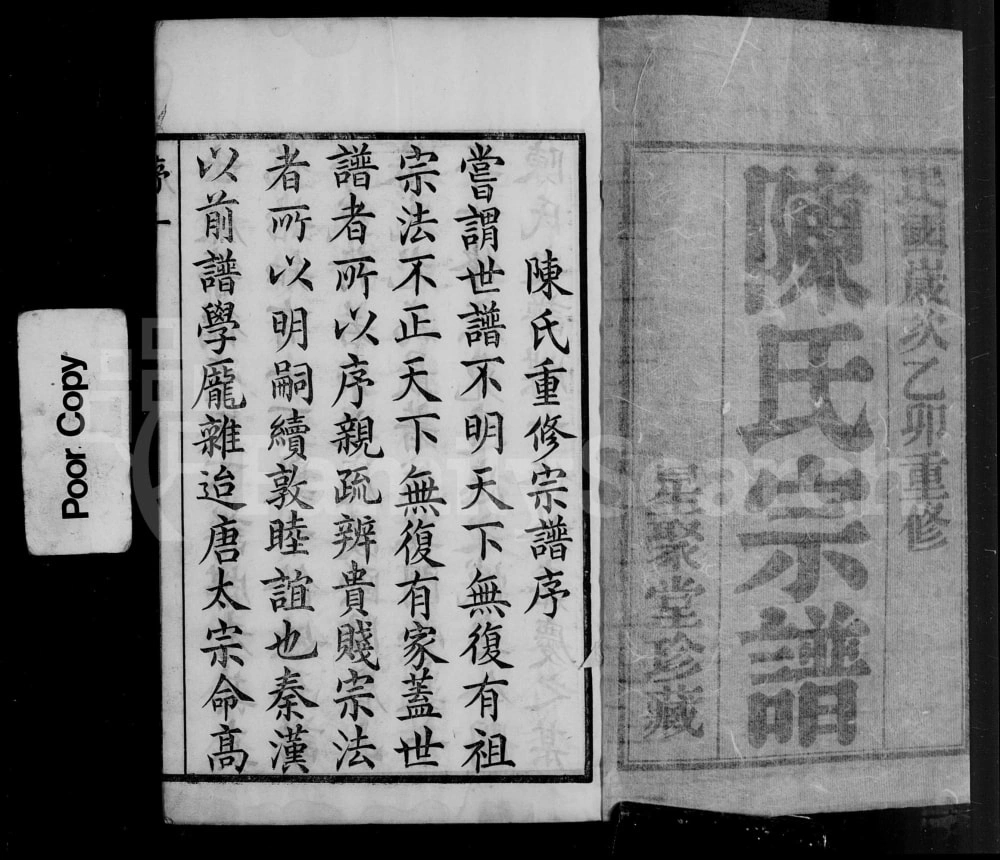 民國歲次乙卯重修
陳氏宗譜
星聚堂珍藏
陳氏重修宗譜序
嘗謂世譜不明天下無復有祖
宗法不正天下無復有家蓋世
譜者所以序親疏辨貴賤宗法
者所以明嗣續敦睦誼也秦漢
以前譜學龐雜迨唐太宗命高
序 一
Poor Copy